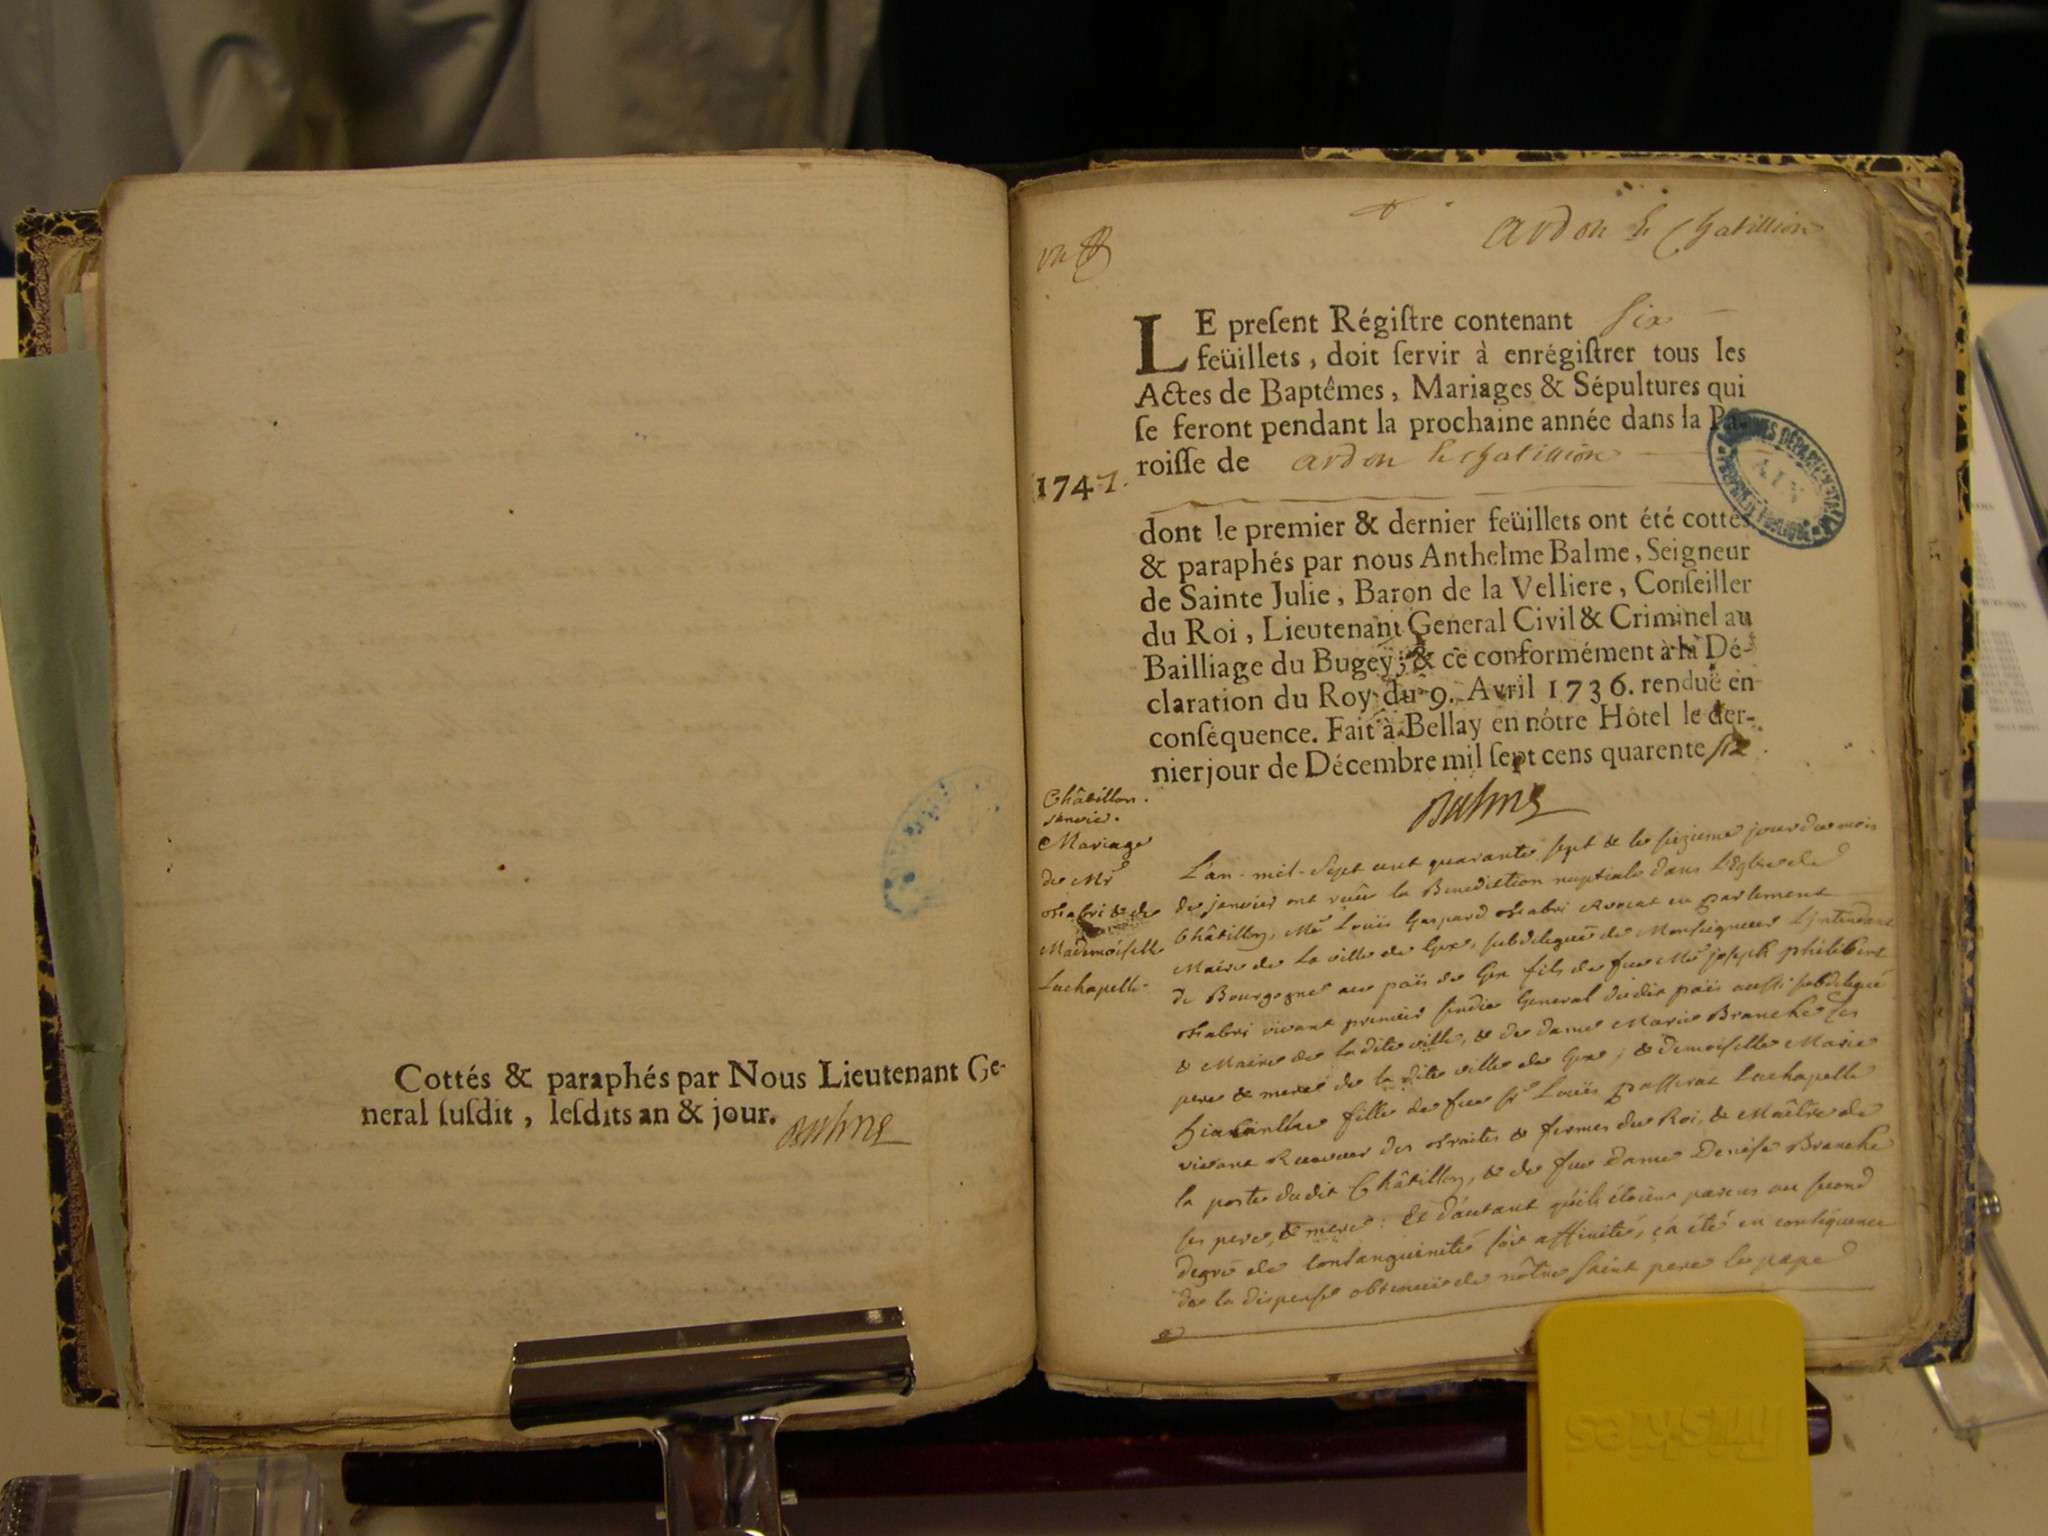 Cottés & paraphés par Nous Lieutenant Ge-
neral ſuſdit, leſdits an & jour.
Balme
ardon et Chatillion
LE preſent Régiſtre contenant Six
feüillets, doit ſervir à enrégiſtrer tous les
Actes de Baptêmes, Mariages & Sépultures qui
ſe feront pendant la prochaine année dans la Pa-
roiſſe de ardon et chatillion
1747.
dont le premier & dernier feüillets ont été cottés
& paraphés par nous Anthelme Balme, Seigneur
de Sainte Julie, Baron de la Velliere, Conſeiller
du Roi, Lieutenant General Civil & Criminel au
Bailliage du Bugey; & ce conformément à la Dé-
claration du Roy du 9. Avril 1736. renduë en
conſéquence. Fait à Bellay en nôtre Hôtel le der-
nier jour de Décembre mil ſept cens quarente ſix
Balme
Châtillon.
Janvier.
Mariage
de Mr
Fabri & de
Mademoiselle
Lachapelle
L'an mil Sept cent quarante sept & le sizieme jour du mois
de janvier ont reçu la Benediction nuptiale dans l'Eglise de
Châtillon, Mr Loüis Gaspard Fabri Avocat en parlement
Maire de la ville de Gex, subdelegué de Monseigneur L'intendant
de Bourgogne au païs de Gex fils de feu Mr joseph philibert
Fabri vivant premier sindic General dudit païs aussi subdelegué
& Maire de ladite ville, & de dame Marie Branche ses
pere & mere de la dite ville de Gex, & demoiselle Marie
hiacinthe fille de feu sr Loüis passerat Lachapelle
vivant Receveur des traites & fermes du Roi, & Maître de
la poste dudit Châtillon, & de feue dame Denise Branche
ses pere & mere: Et d'autant qu'ils étoient parens au second
degré de consanguinité soit affinité, ç'a été en conséquence
de la dispense obtenuë de nôtre saint pere le pape
Triskies